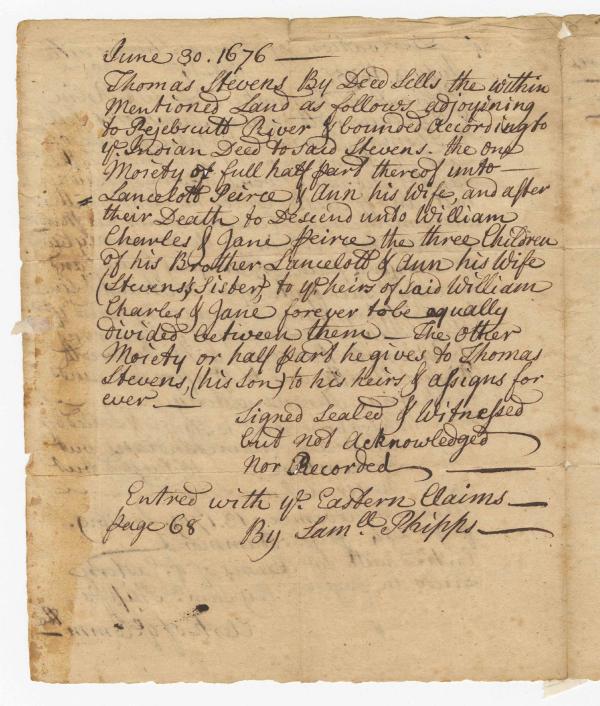 June 30. 1676 —
Thomas Stevens By Deed Sells the within
Mentioned Land as follows adjoyning
to Pejebscutt River & bounded According to
ye. Indian Deed to said Stevens. the one
Moiety or full half part thereof unto —
Lancelott Peirce & Ann his Wife, and after
their Death to Descend unto William
Charles & Jane Peirce the three Children
of his Brother Lancelott & Ann his Wife
(Stevens's Sister) to ye. heirs of said William
Charles & Jane, forever to be equally
divided between them — The Other
Moiety or half part he gives to Thomas
Stevens, (his Son) to his heirs & assigns for
ever —
Signed Sealed & Witnessed
but not Acknowledged
Nor Recorded —
Entred with ye. Eastern Claims —
page 68 By Samll. Phipps —